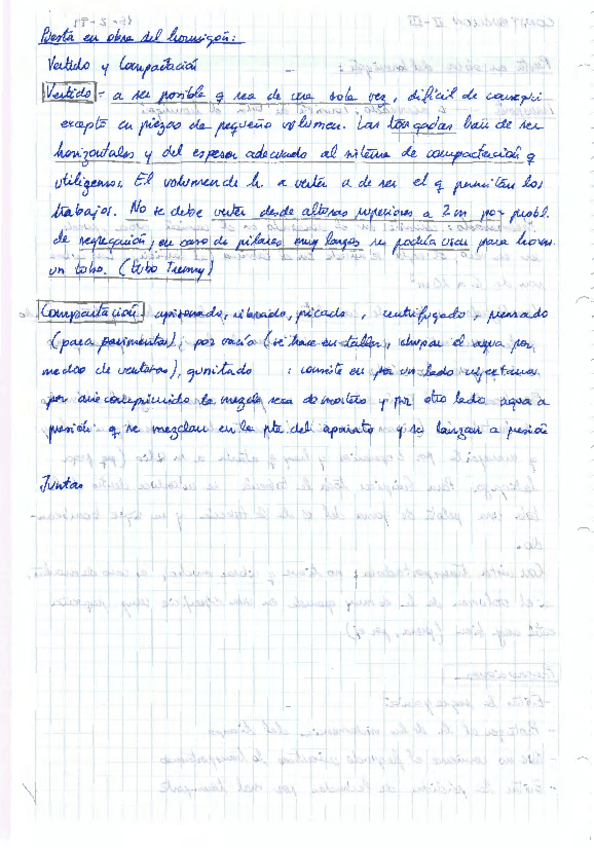 Puesta en obra del hormigón:
Vertido y Compactación
Vertido - a ser posible q sea de una sola vez, difícil de consegui
excepto en piezas de pequeño volumen. Las tongadas han de ser
horizontales y del espesor adecuado al sistema de compactación q
utilicemos. El volumen de h. a verter a de ser el q permitan los
trabajos. No se debe verter desde alturas superiores a 2 m por probl.
de segregación, en caso de pilares muy largos se podría usar para horm.
un tubo. (tubo Tremy)
Compactación apisonado, vibrado, picado, centrifugado, prensado
(para pavimentos), por vacío (se hace en taller, chupar el agua por
medios de ventosas), gunitado : consiste en por un lado
por aire comprimido la mezcla seca de mortero y por otro lado agua a
presión q se mezclan en la pta del aparato y se lanzan a presión
Juntas